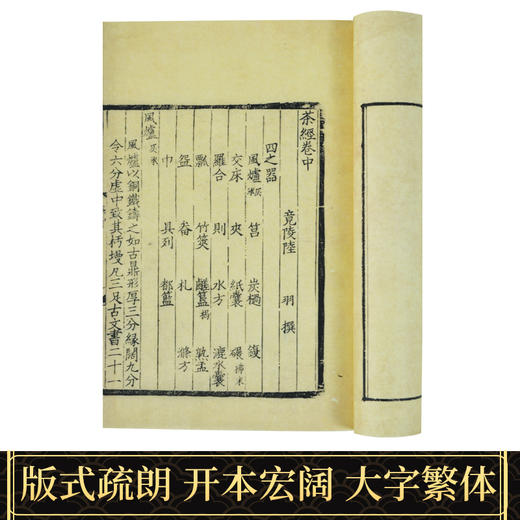 茶經卷中
竟陵陸 羽 撰
四之器
風爐灰承 筥 炭檛 鍑
交床 夾 紙囊 碾拂末
羅合 則 水方 漉水囊
瓢 竹筴 鹺簋揭 熟盂
盌 畚 札 滌方
巾 具列 都籃
風爐灰承
風爐以銅鐵鑄之如古鼎形厚三分緣闊九分
令六分虛中致其杇墁凡三足古文書二十一
版式疏朗 开本宏阔 大字繁体